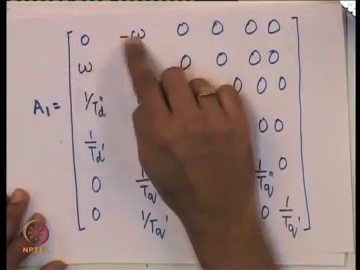 A₁ =
0 -ω 0 0 0 0
ω 0 0 0 0
1/T″d 0 0 0
1/T′d 0 0
0 1/Tq 1/T″q 0
0 1/T′q 0 1/T′q
NPTEL